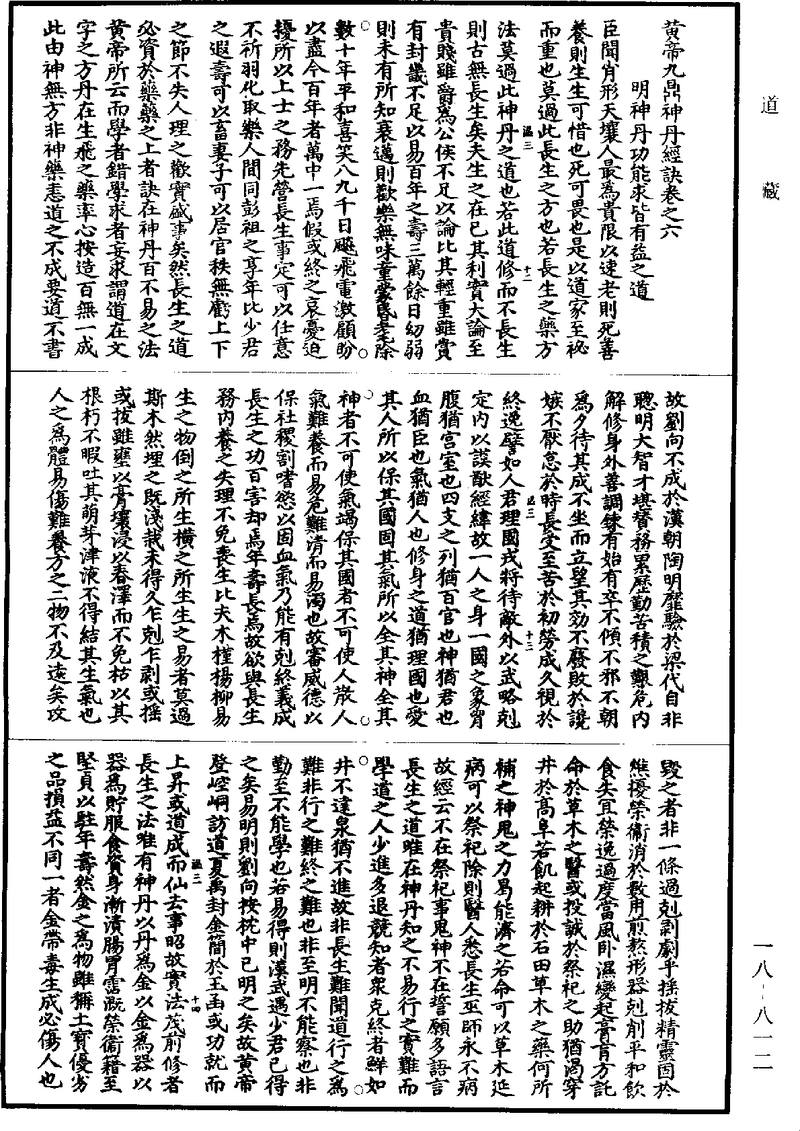 道藏
黄帝九鼎神丹經訣卷之六
明神丹功能求皆有益之道
臣聞肖形天壤人最爲貴限以速老則死善
養則生生可惜也死可畏也是以道家至祕
而重也莫過此長生之方也若長生之藥方
法莫過此神丹之道也若此道修而不長生
則古無長生矣夫生之在已其利實大論至
貴賤雖爵爲公侯不足以論比其輕重雖賞
有封畿不足以易百年之壽三萬餘日幼弱
則未有所知衰邁則歡樂無味童蒙昬耄除
數十年平和喜笑八九千日飈飛電激顧盼
以盡今百年者萬中一焉假或終之哀憂迫
擾所以上士之務先營長生事定可以任意
不祈羽化取樂人間同彭祖之享年比少君
之遐壽可以畜妻子可以居官秩無虧上下
之節不失人理之歡實盛事矣然長生之道
必資於藥藥之上者訣在神丹百不易之法
黄帝所云而學者錯學求者妄求謂道在文
字之方丹在生飛之藥率心按造百無一成
此由神無方非神藥恚道之不成要道不書
故劉向不成於漢朝陶明靡驗於梁代自非
聰明大智才堪督務累歷勤苦積之艱危內
解修身外善調鍊有始有卒不傾不邪不朝
爲夕待其成不坐而立望其効不廢敗於讒
嫉不厭怠於時長受至苦於初勞成久視於
終逸譬如人君理國戎將待敵外以武略剋
定內以謨猷經緯故一人之身一國之象胷
腹猶宮室也四支之列猶百官也神猶君也
血猶臣也氣猶人也修身之道猶理國也愛
其人所以保其國固其氣所以全其神全其
神者不可使氣竭保其國者不可使人散人
氣難養而易危難清而易濁也故審威德以
保社稷割嗜慾以固血氣乃能有剋終義成
長生之功百害却焉年壽長焉故欲與長生
務內養之失理不免喪生比夫木槿楊柳易
生之物倒之所生橫之所生生之易者莫過
斯木然埋之旣淺栽未得久乍剋乍剥或揺
或拔雖壅以膏壤浸以春澤而不免枯以其
根朽不暇吐其萌芽津液不得結其生氣也
人之爲體易傷難養方之二物不及遠矣攻
毀之者非一條過剋剥劇乎揺拔精靈困於
煩擾榮衞消於數用煎熬形器剋削平和飲
食失宜榮逸過度當風卧濕變起膏肓方託
命於草木之醫或投誠於祭祀之助猶渴穿
井於高阜若飢起耕於石田草木之藥何所
補之神鬼之力曷能濟之若命可以草木延
病可以祭祀除則醫人悉長生巫師永不病
故經云不在祭祀事鬼神不在誓願多語言
長生之道唯在神丹知之不易行之實難而
學道之人少進多退競知者衆克終者鮮如
井不達泉猶不進故非長生難聞道行之爲
難非行之難終之難也非至明不能察也非
勤至不能學也若易得則漢武遇少君已得
之矣易明則劉向按枕中已明之矣故黄帝
登崆峒訪道夏禹封金簡於玉函或功就而
上昇或道成而仙去事昭故實法茂前修者
長生之法唯有神丹以丹爲金以金爲器以
器爲貯服食資身漸漬腸胃霑溉榮衞藉至
堅貞以駐年壽然金之爲物雖稱土寳優劣
之品損益不同一者金帶毒生成必傷人也
温三
十二
温三
十三
温三
十四
一八-八一二